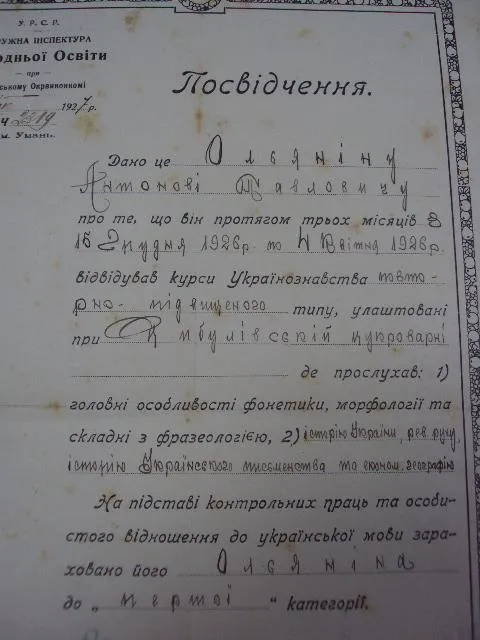 У. Р. С. Р.
РУЖНА ІНСПЕКТУРА
одньої Освіти
— при —
ському Окрвиконкомі
1927 р.
Ч 2319
м. Умань.
Посвідчення.
Дано це Ольяніну
Антонові Павловичу
про те, що він протягом трьох місяців з
15 Грудня 1926 р. по 4 Квітня 1926 р.
відвідував курси Українознавства повто-
рно-підвищеного типу, улаштовані
при Цибулівській цукроварні
де прослухав: 1)
головні особливості фонетики, морфології та
складні з фразеологією, 2) історію України, рев. руху,
історію Українського письменства та економ. географію
На підставі контрольних праць та особи-
стого відношення до української мови зара-
ховано його Ольяніна
до „першої" категорії.